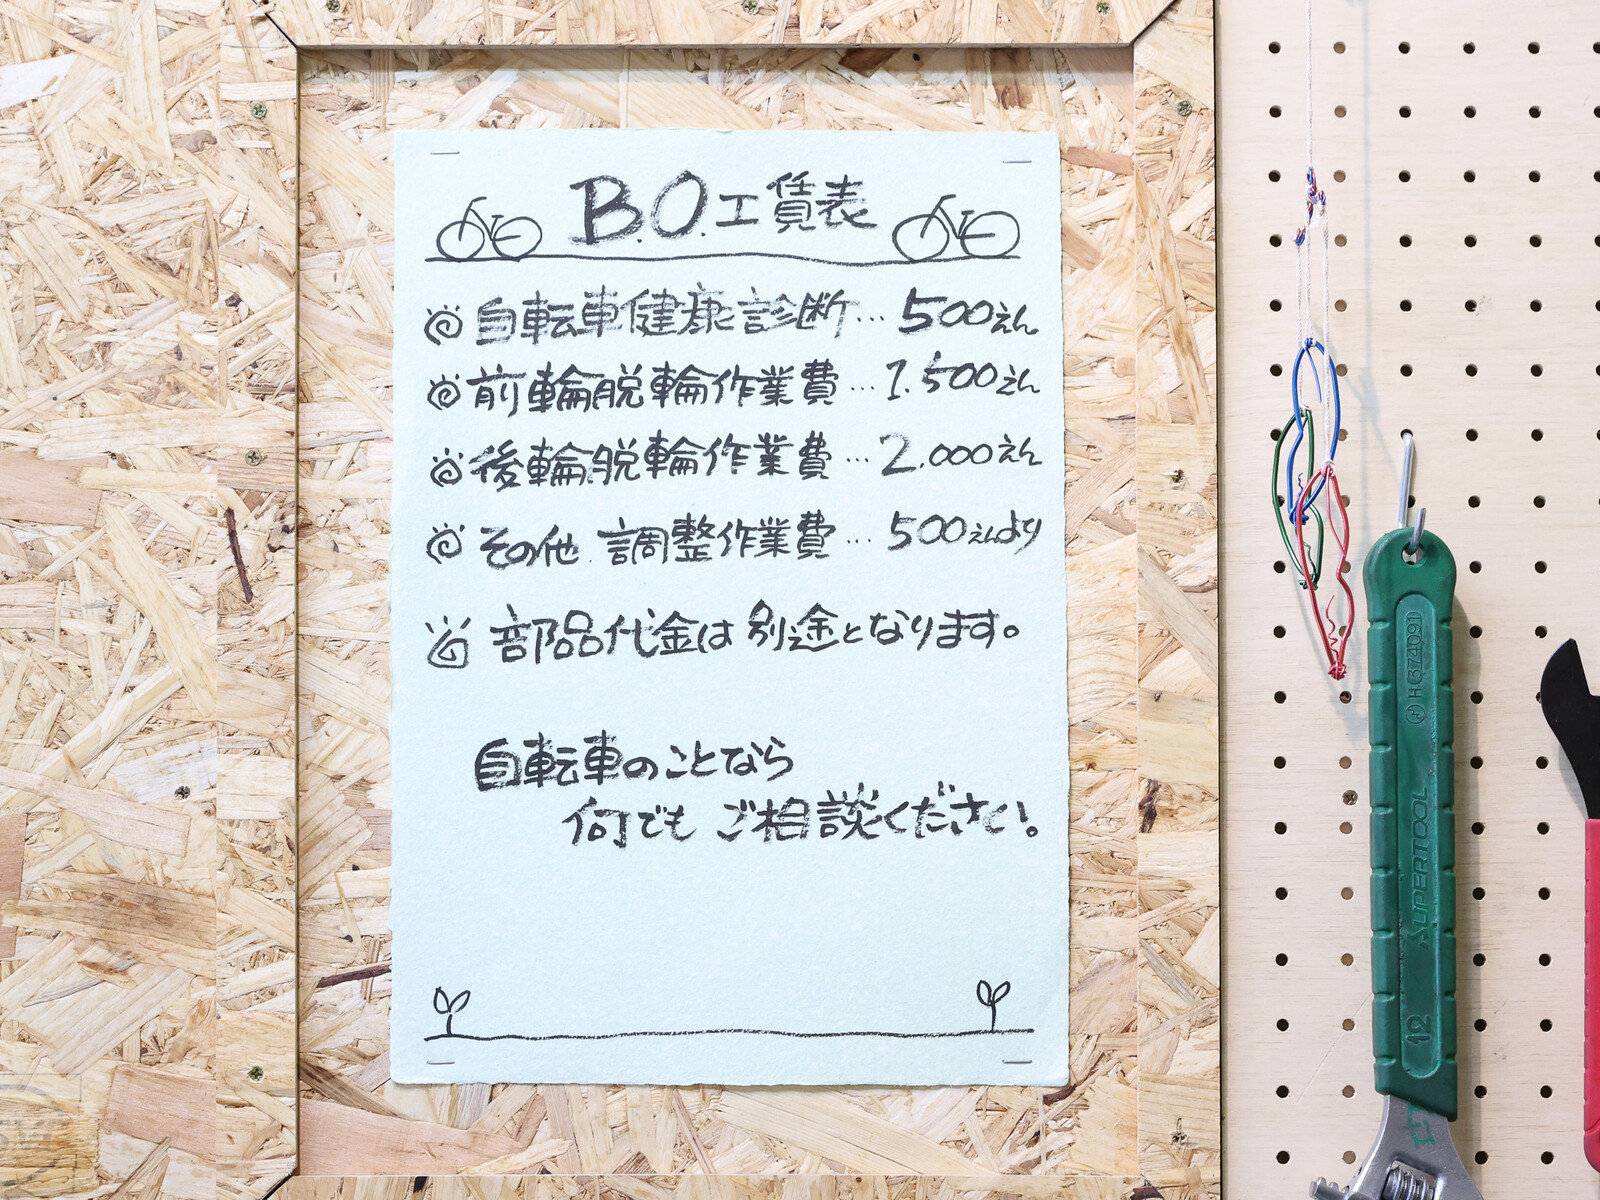 B.O.工賃表
自転車健康診断…500えん
前輪脱輪作業費…1.500えん
後輪脱輪作業費…2.000えん
その他 調整作業費…500えんより
部品代金は別途となります。
自転車のことなら
何でもご相談ください!。
H 374091
SUPERTOOL
12